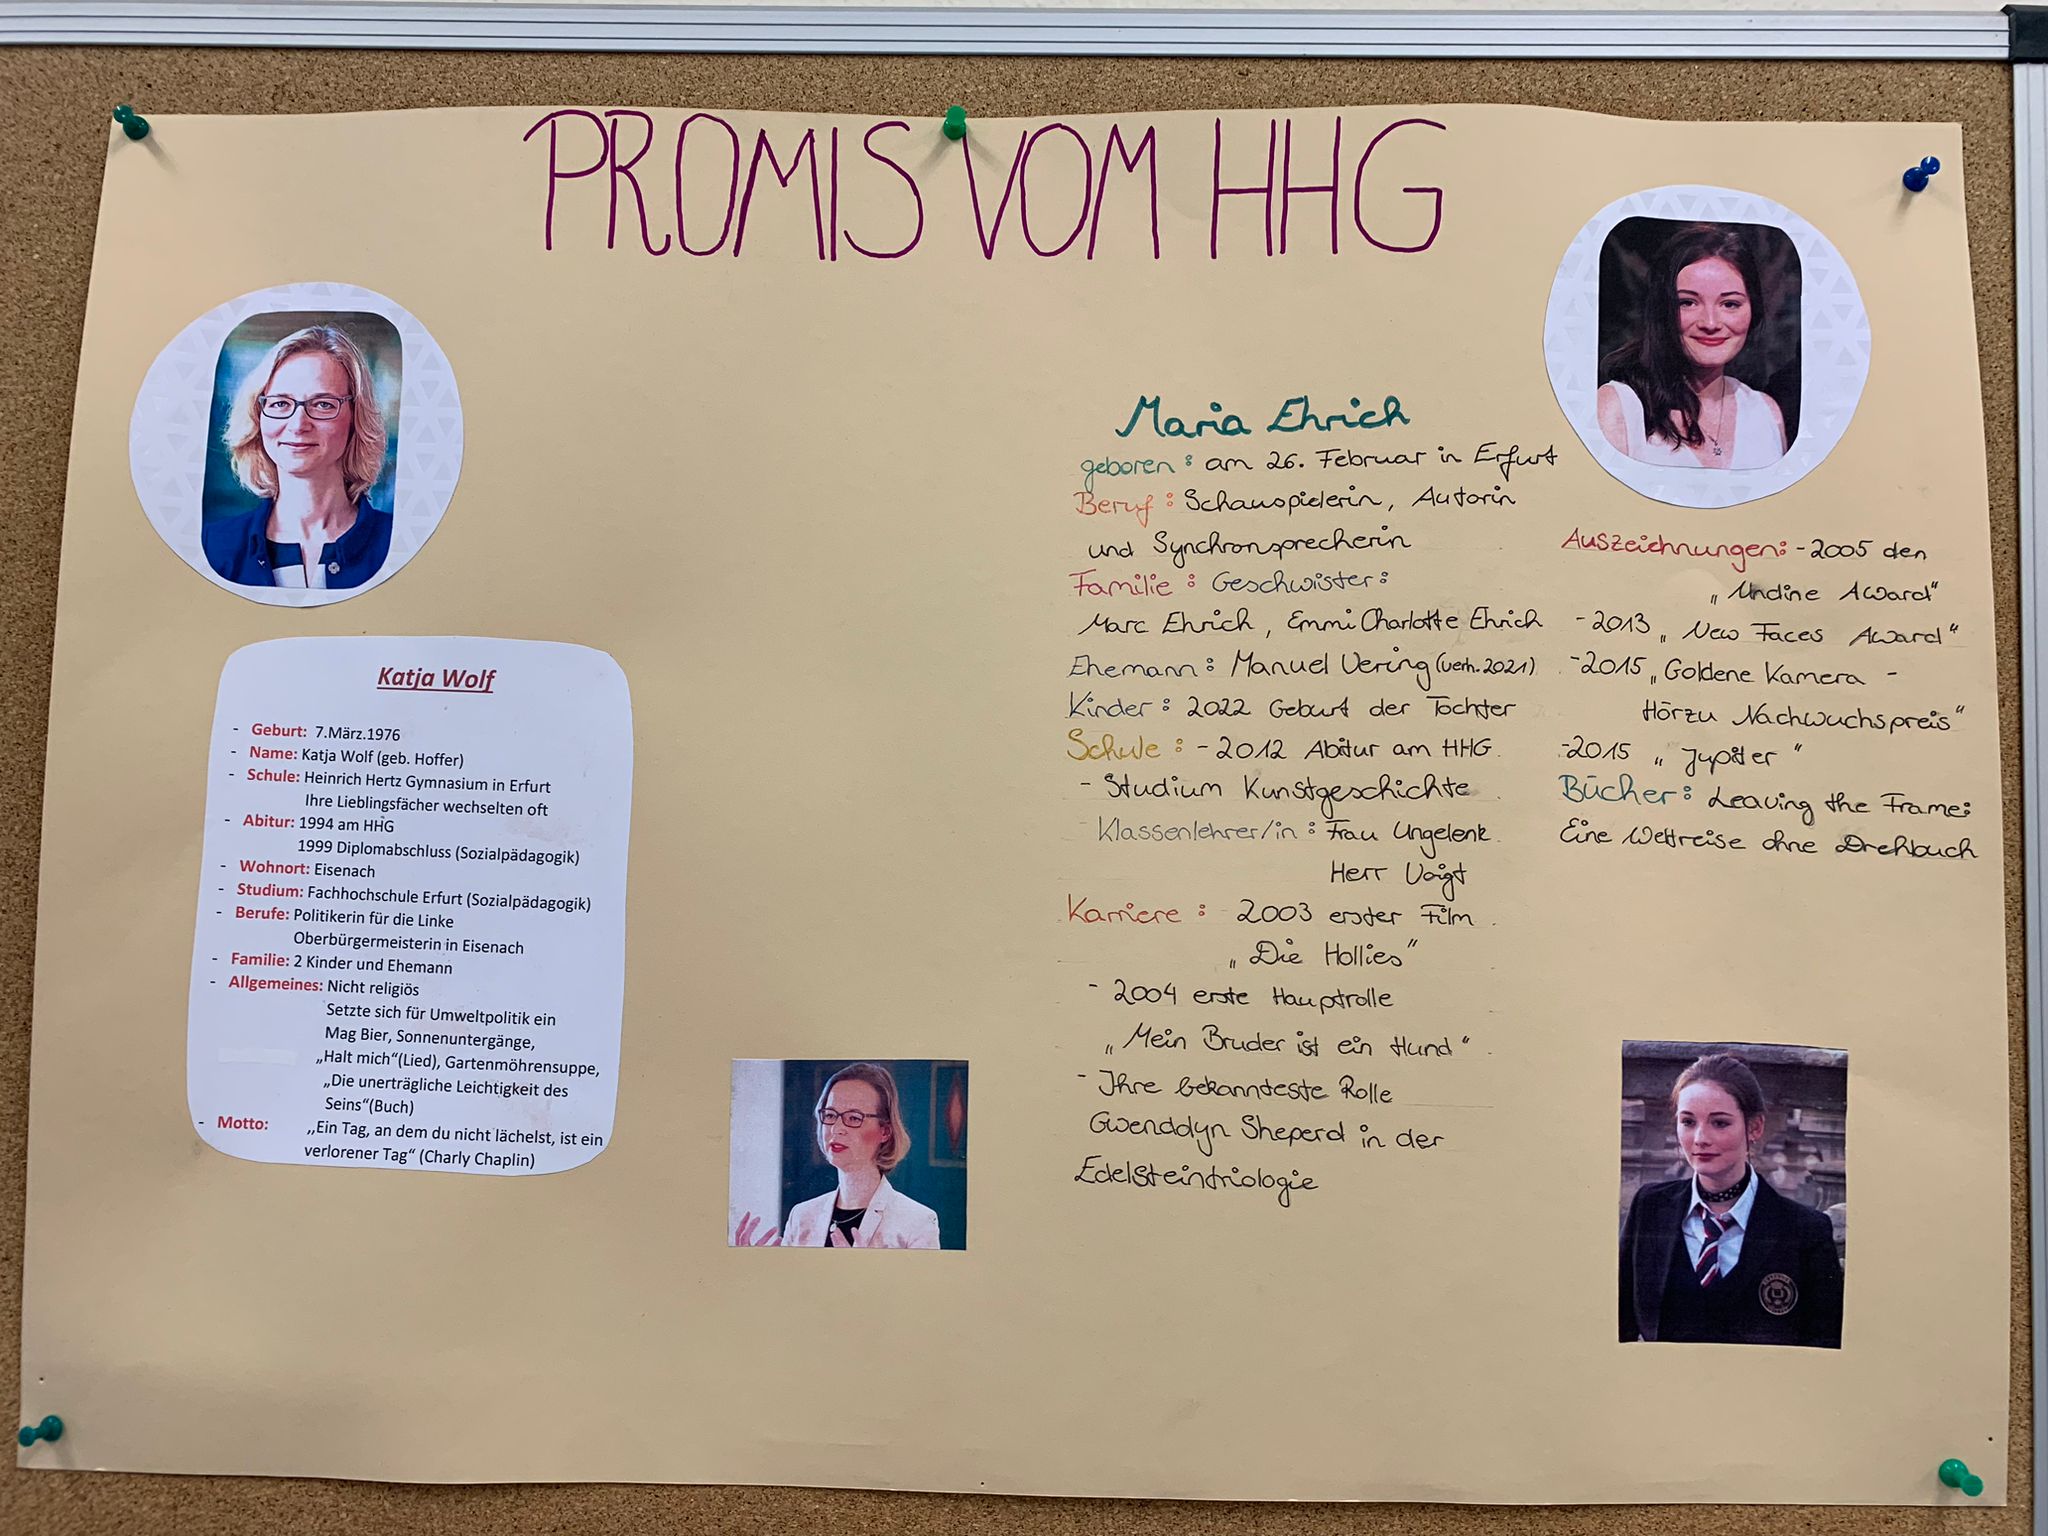 PROMIS VOM HHG
Katja Wolf
- Geburt: 7.März.1976
- Name: Katja Wolf (geb. Hoffer)
- Schule: Heinrich Hertz Gymnasium in Erfurt
Ihre Lieblingsfächer wechselten oft
- Abitur: 1994 am HHG
1999 Diplomabschluss (Sozialpädagogik)
- Wohnort: Eisenach
- Studium: Fachhochschule Erfurt (Sozialpädagogik)
- Berufe: Politikerin für die Linke
Oberbürgermeisterin in Eisenach
- Familie: 2 Kinder und Ehemann
- Allgemeines: Nicht religiös
Setzte sich für Umweltpolitik ein
Mag Bier, Sonnenuntergänge,
„Halt mich“(Lied), Gartenmöhrensuppe,
„Die unerträgliche Leichtigkeit des
Seins“(Buch)
- Motto: „Ein Tag, an dem du nicht lächelst, ist ein
verlorener Tag“ (Charly Chaplin)
Maria Ehrich
geboren: am 26. Februar in Erfurt
Beruf: Schauspielerin, Autorin
und Synchronsprecherin
Familie: Geschwister:
Marc Ehrich, Emmi Charlotte Ehrich
Ehemann: Manuel Vering (verh. 2021)
Kinder: 2022 Geburt der Tochter
Schule: - 2012 Abitur am HHG
- Studium Kunstgeschichte
Klassenlehrer/in: Frau Ungelenk
Herr Voigt
Karriere: 2003 erster Film
„Die Hollies“
- 2004 erste Hauptrolle
„Mein Bruder ist ein Hund“
- Ihre bekannteste Rolle
Gwenddyn Sheperd in der
Edelsteintriologie
Auszeichnungen: - 2005 den
„Undine Award“
- 2013 „New Faces Award“
- 2015 „Goldene Kamera -
Hörzu Nachwuchspreis“
- 2015 „Jupiter“
Bücher: Leaving the Frame:
Eine Weltreise ohne Drehbuch